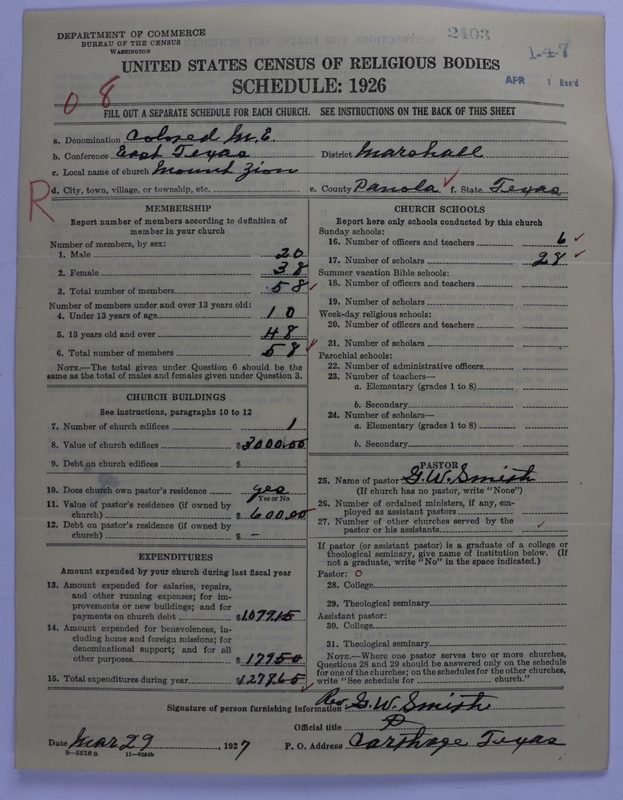 DEPARTMENT OF COMMERCE
BUREAU OF THE CENSUS
WASHINGTON
2403
1-4-7
APR 1 Rec'd
UNITED STATES CENSUS OF RELIGIOUS BODIES
SCHEDULE: 1926
08
FILL OUT A SEPARATE SCHEDULE FOR EACH CHURCH. SEE INSTRUCTIONS ON THE BACK OF THIS SHEET
a. Denomination Colored M.E.
b. Conference East Texas District Marshall
c. Local name of church Mount Zion
R d. City, town, village, or township, etc. e. County Panola ✓ f. State Texas
MEMBERSHIP
Report number of members according to definition of member in your church
Number of members, by sex:
1. Male 20
2. Female 38
3. Total number of members 58 ✓
Number of members under and over 13 years old:
4. Under 13 years of age 10
5. 13 years old and over 48
6. Total number of members 58 ✓
NOTE.—The total given under Question 6 should be
same as the total of males and females given under Question 3.
CHURCH BUILDINGS
See instructions, paragraphs 10 to 12
7. Number of church edifices 1
8. Value of church edifices $3000.00
9. Debt on church edifices $
10. Does church own pastor's residence yes
Yes or No
11. Value of pastor's residence (if owned by
church) $600.00
12. Debt on pastor's residence (if owned by
church) $ –
EXPENDITURES
Amount expended by your church during last fiscal year
13. Amount expended for salaries, repairs,
and other running expenses; for im-
provements or new buildings; and for
payments on church debt $1079.15
14. Amount expended for benevolences, in-
cluding home and foreign missions; for
denominational support; and for all
other purposes $179.50
15. Total expenditures during year $1278.65 ✓
CHURCH SCHOOLS
Report here only schools conducted by this church
Sunday schools:
16. Number of officers and teachers 6 ✓
17. Number of scholars 28 ✓
Summer vacation Bible schools:
18. Number of officers and teachers
19. Number of scholars
Week-day religious schools:
20. Number of officers and teachers
21. Number of scholars
Parochial schools:
22. Number of administrative officers
23. Number of teachers—
a. Elementary (grades 1 to 8)
b. Secondary
24. Number of scholars—
a. Elementary (grades 1 to 8)
b. Secondary
PASTOR
25. Name of pastor G.W. Smith
(If church has no pastor, write "None")
26. Number of ordained ministers, if any, em-
ployed as assistant pastors
27. Number of other churches served by the
pastor or his assistants ✓
If pastor (or assistant pastor) is a graduate of a college or
theological seminary, give name of institution below. (If
not a graduate, write "No" in the space indicated.)
Pastor: O
28. College
29. Theological seminary
Assistant pastor:
30. College
31. Theological seminary
NOTE.—Where one pastor serves two or more churches,
Questions 28 and 29 should be answered only on the schedule
for one of the churches; on the schedules for the other churches,
write "See schedule for church."
Signature of person furnishing information Rev. G.W. Smith
Official title P
Date Mar 29, 1927 P. O. Address Carthage Texas
8—5818a